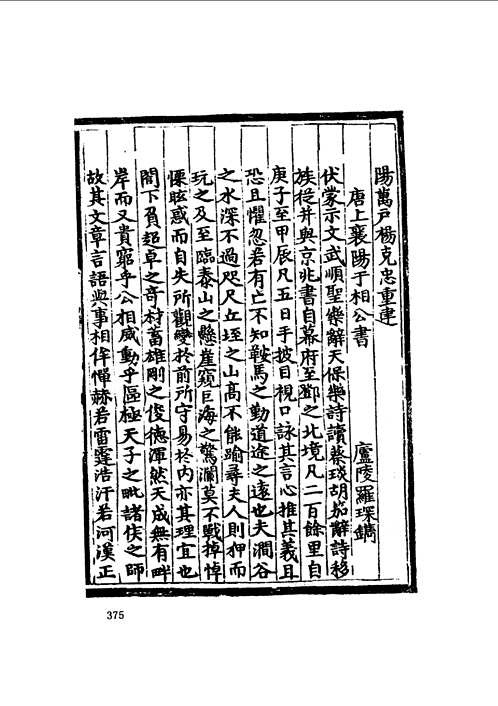 陽萬戶楊克忠重建
唐上襄陽于相公書　廬陵羅璞鐫
伏蒙示文武順聖樂辭天保樂詩讀蔡琰胡笳辭詩移
族從并與京兆書自幕府至鄧之北境凡二百餘里自
庚子至甲辰凡五日手披目視口詠其言心推其義且
恐且懼忽若有亡不知鞍馬之勤道途之遠也夫澗谷
之水深不過咫尺丘垤之山高不能踰尋丈人則狎而
玩之及至臨泰山之懸崖窺巨海之驚瀾莫不戰掉悼
慄眩惑而自失所觀變於前所守易於內亦其理宜也
閤下負超卓之奇材畜雄剛之俊德渾然天成無有畔
岸而又貴窮乎公相威動乎區極天子之毗諸侯之師
故其文章言語與事相侔憚赫若雷霆浩汗若河漢正
375